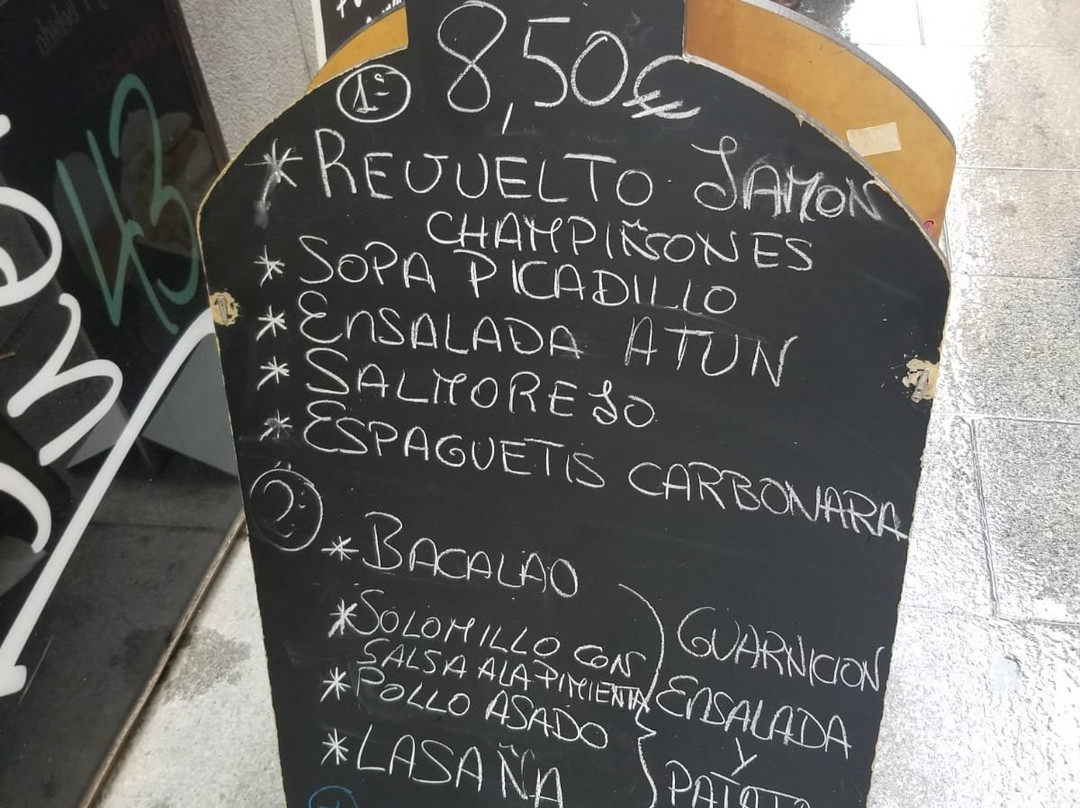 8,50€
1º
* REVUELTO JAMON
CHAMPIÑONES
* SOPA PICADILLO
* ENSALADA ATUN
* SALMOREJO
* ESPAGUETIS CARBONARA
2º
* BACALAO
* SOLOMILLO CON
SALSA A LA PIMIENTA
* POLLO ASADO
* LASAÑA
GUARNICION
ENSALADA
Y
43